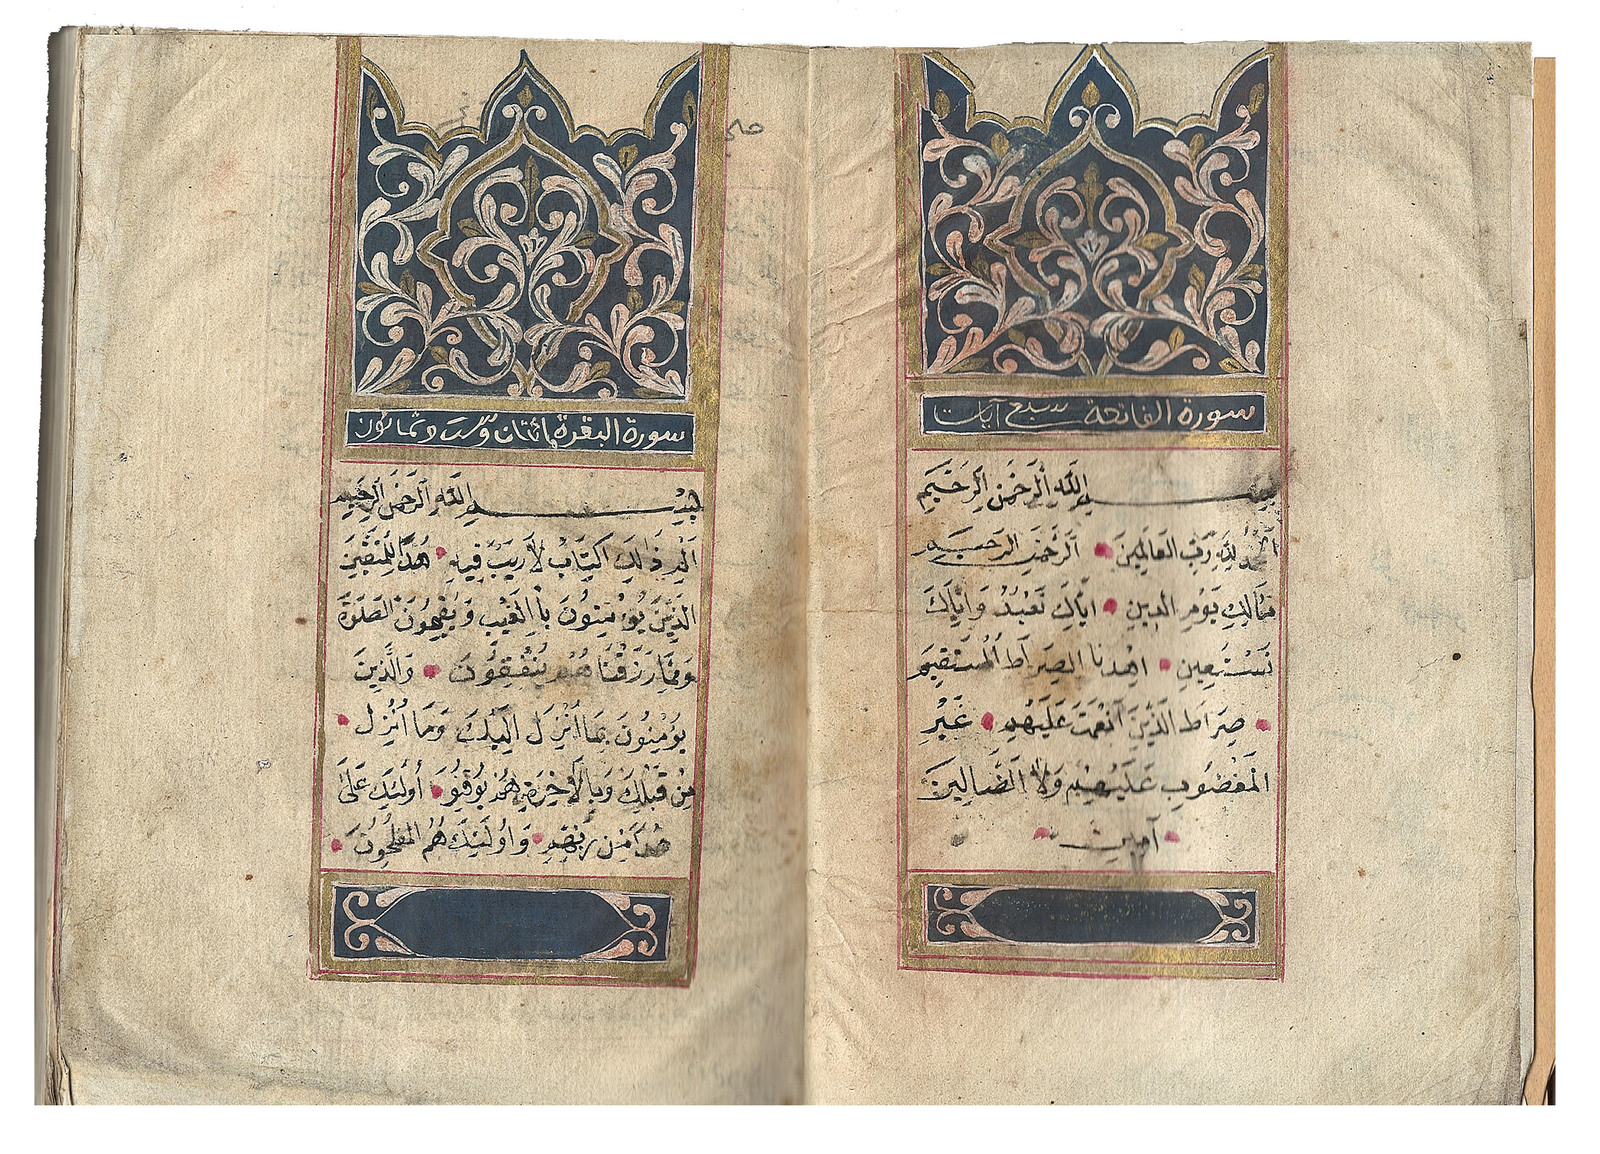 سورة الفاتحة سبع آيات
بِسْمِ اللَّهِ الرَّحْمٰنِ الرَّحِيمِ
الْحَمْدُ لِلَّهِ رَبِّ الْعَالَمِينَ الرَّحْمٰنِ الرَّحِيمِ
مَالِكِ يَوْمِ الدِّينِ اِيَّاكَ نَعْبُدُ وَاِيَّاكَ
نَسْتَعِينُ اِهْدِنَا الصِّرَاطَ الْمُسْتَقِيمَ
صِرَاطَ الَّذِينَ اَنْعَمْتَ عَلَيْهِمْ غَيْرِ
الْمَغْضُوبِ عَلَيْهِمْ وَلَا الضَّالِّينَ
آمين
سورة البقرة مائتان وست وثمانون
بِسْمِ اللَّهِ الرَّحْمٰنِ الرَّحِيمِ
الم ذَالِكَ الْكِتَابُ لَا رَيْبَ فِيهِ هُدًا لِلْمُتَّقِينَ
الَّذِينَ يُؤْمِنُونَ بِالْغَيْبِ وَيُقِيمُونَ الصَّلَوٰةَ
وَمِمَّا رَزَقْنَا هُمْ يُنْفِقُونَ وَالَّذِينَ
يُؤْمِنُونَ بِمَا اُنْزِلَ اِلَيْكَ وَمَا اُنْزِلَ
مِنْ قَبْلِكَ وَبِالْاٰخِرَةِ هُمْ يُوقِنُو اُولَئِكَ عَلَى
هُدًا مِنْ رَبِّهِمْ وَاُولَئِكَ هُمُ الْمُفْلِحُونَ